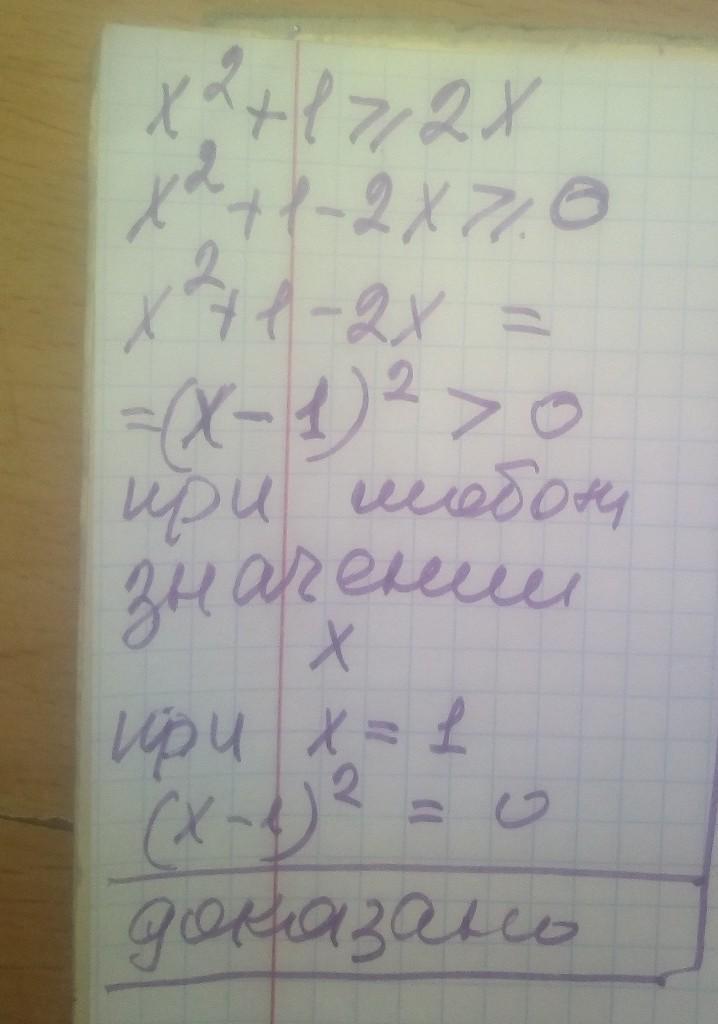 x²+1⩾2x
x²+1-2x⩾0
x²+1-2x =
=(x-1)² > 0
при любом
значении
x
при x = 1
(x-1)² = 0
доказано